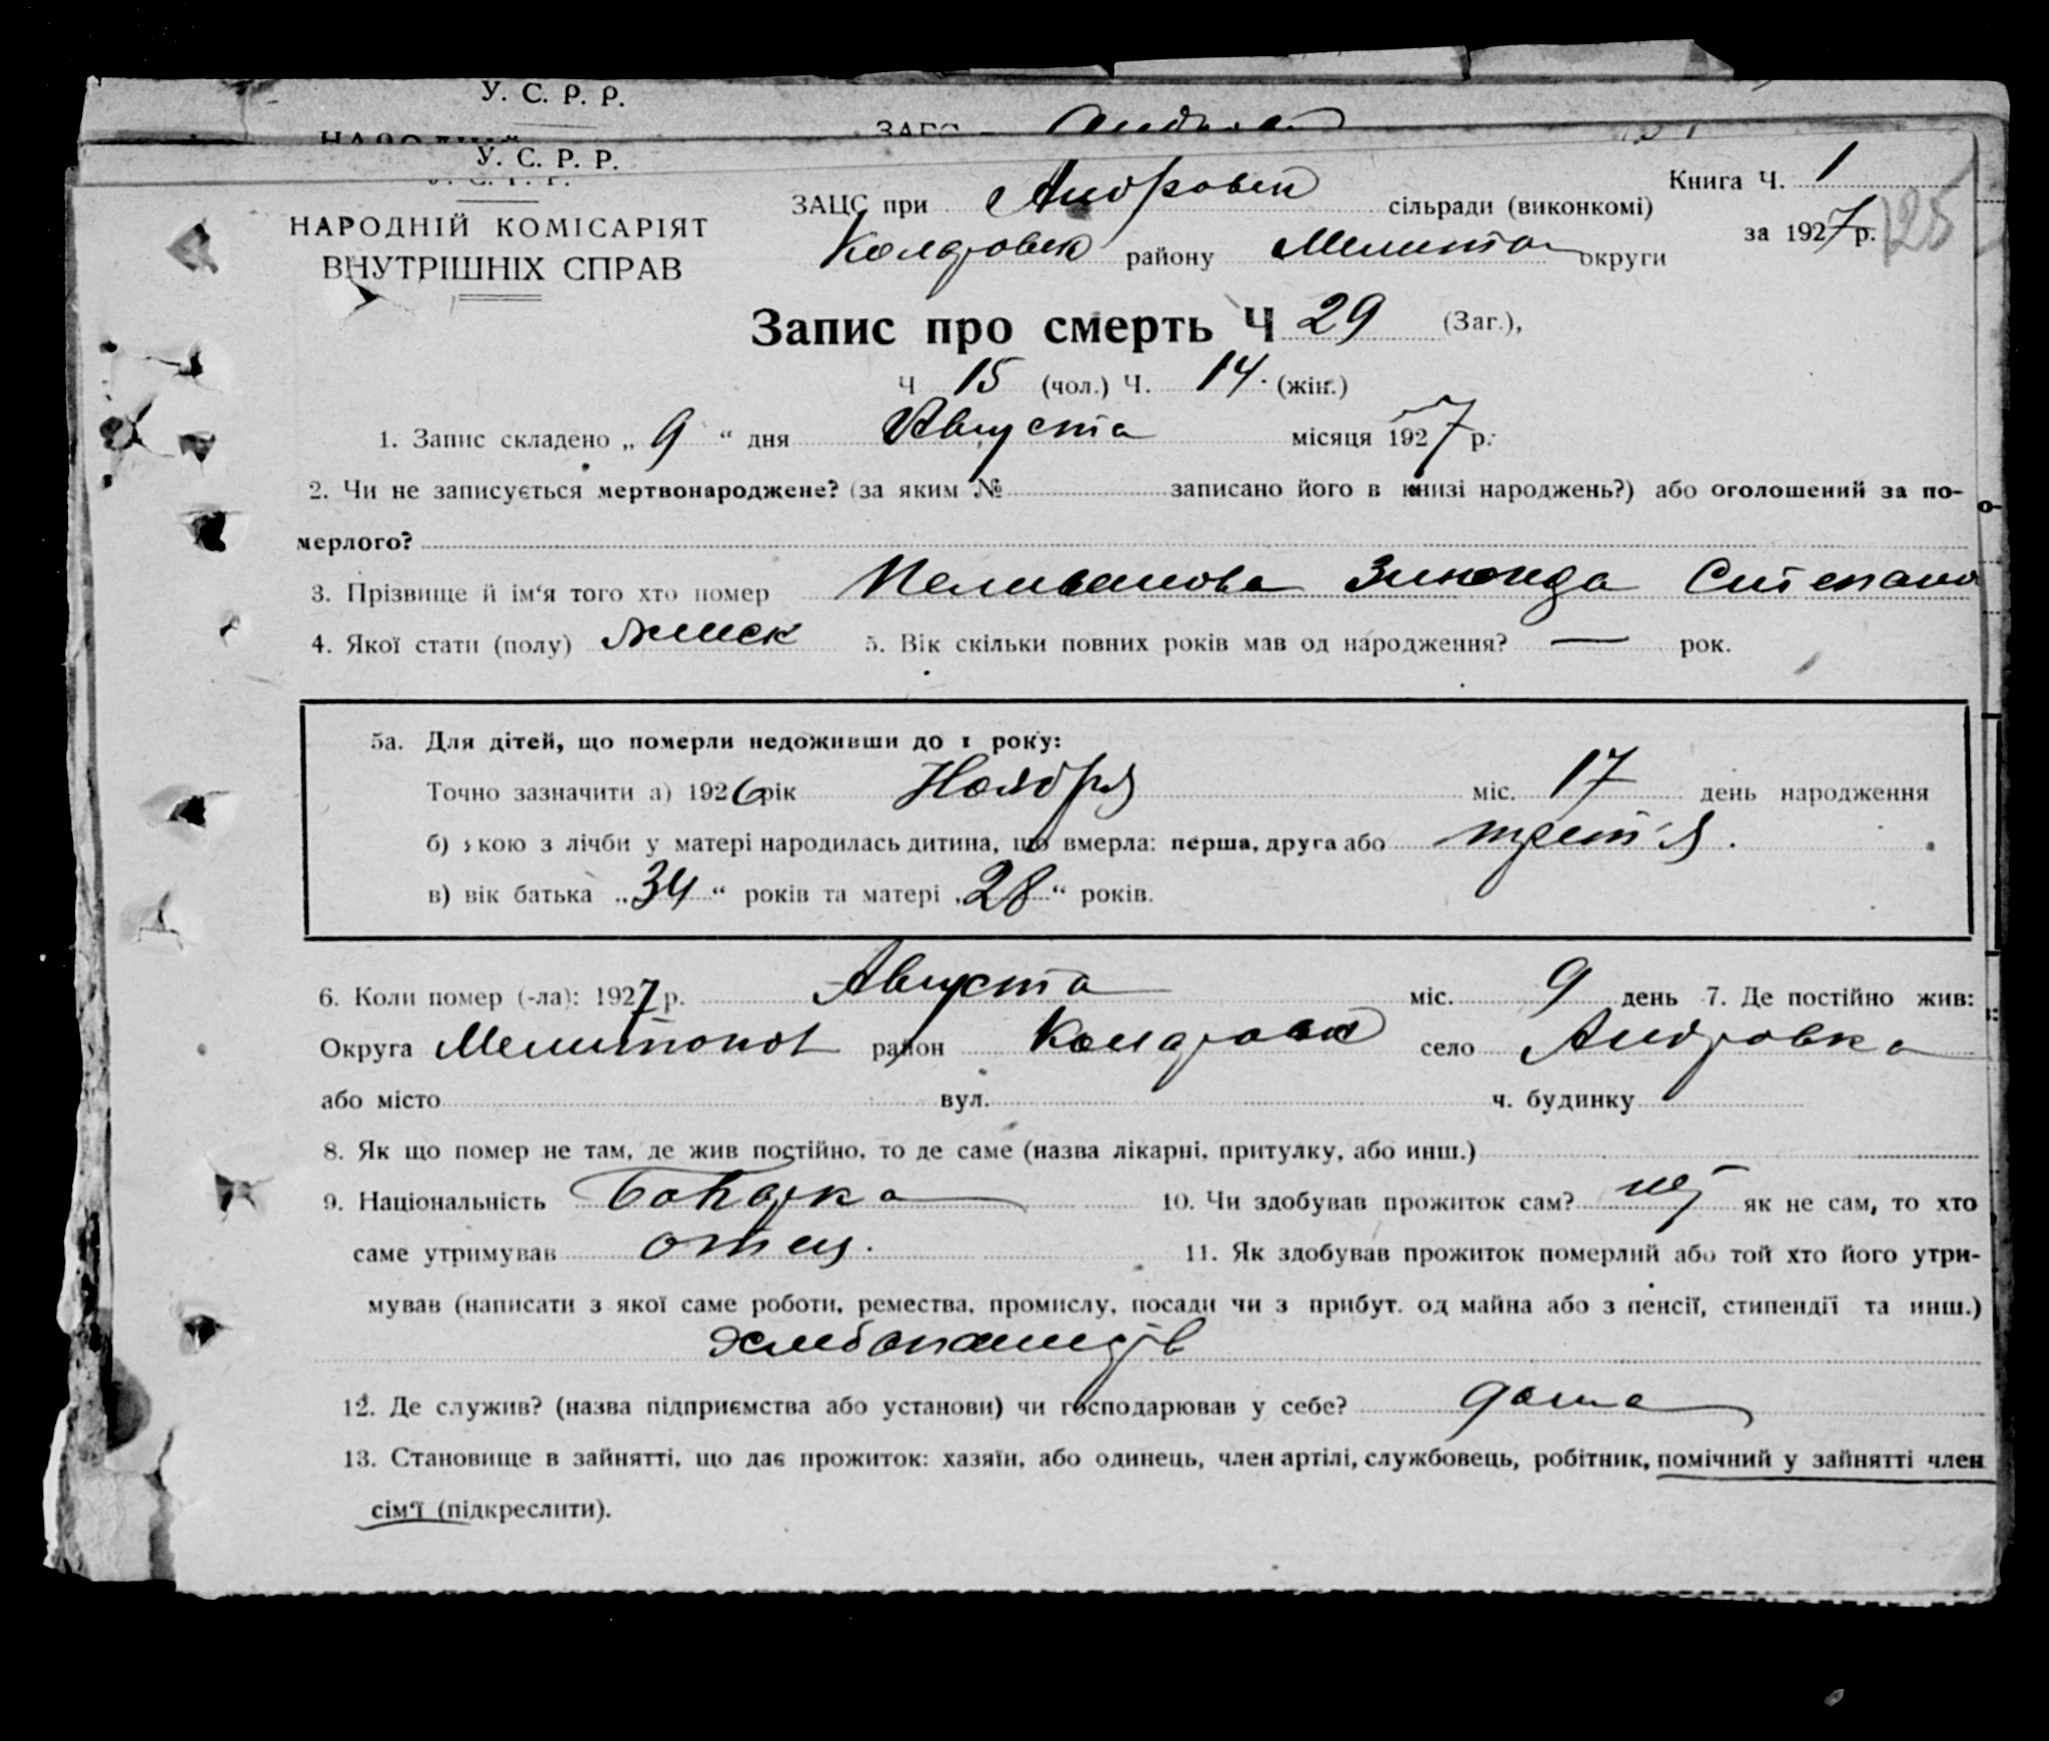 У. С. Р. Р.
У. С. Р. Р.
НАРОДНІЙ КОМІСАРІЯТ
ВНУТРІШНІХ СПРАВ
ЗАЦС при Андровск сільради (виконкомі)
Книга Ч. 1
за 1927 р.
125
Коларовск району Мелитоп округи
Запис про смерть Ч 29 (Заг.),
Ч 15 (чол.) Ч. 14. (жін.)
1. Запис складено „ 9 “ дня Августа місяця 1927 р.
2. Чи не записується мертвонароджене? (за яким № записано його в книзі народжень?) або оголошений за по-
мерлого?
3. Прізвище й ім‘я того хто помер Пеливанова Степано
4. Якої стати (полу) женск 5. Вік скільки повних років мав од народження? — рок.
5а. Для дітей, що померли недоживши до 1 року:
Точно зазначити а) 1926 рік Ноября міс. 17 день народження
б) якою з лічби у матері народилась дитина, що вмерла: перша, друга або третья.
в) вік батька „34“ років та матері „28“ років.
6. Коли помер (-ла): 1927 р. Августа міс. 9 день 7. Де постійно жив:
Округа Мелитопол район Коларовск село Андровка
або місто вул. ч. будинку
8. Як що помер не там, де жив постійно, то де саме (назва лікарні, притулку, або инш.)
9. Національність Болгарка 10. Чи здобував прожиток сам? як не сам, то хто
саме утримував отец. 11. Як здобував прожиток померлий або той хто його утри-
мував (написати з якої саме роботи, ремества, промислу, посади чи з прибут. од майна або з пенсії, стипендії та инш.)
12. Де служив? (назва підприємства або установи) чи господарював у себе? дома
13. Становище в зайнятті, що дає прожиток: хазяїн, або одинець, член артілі, службовець, робітник, помічний у зайнятті член
сім‘ї (підкреслити).